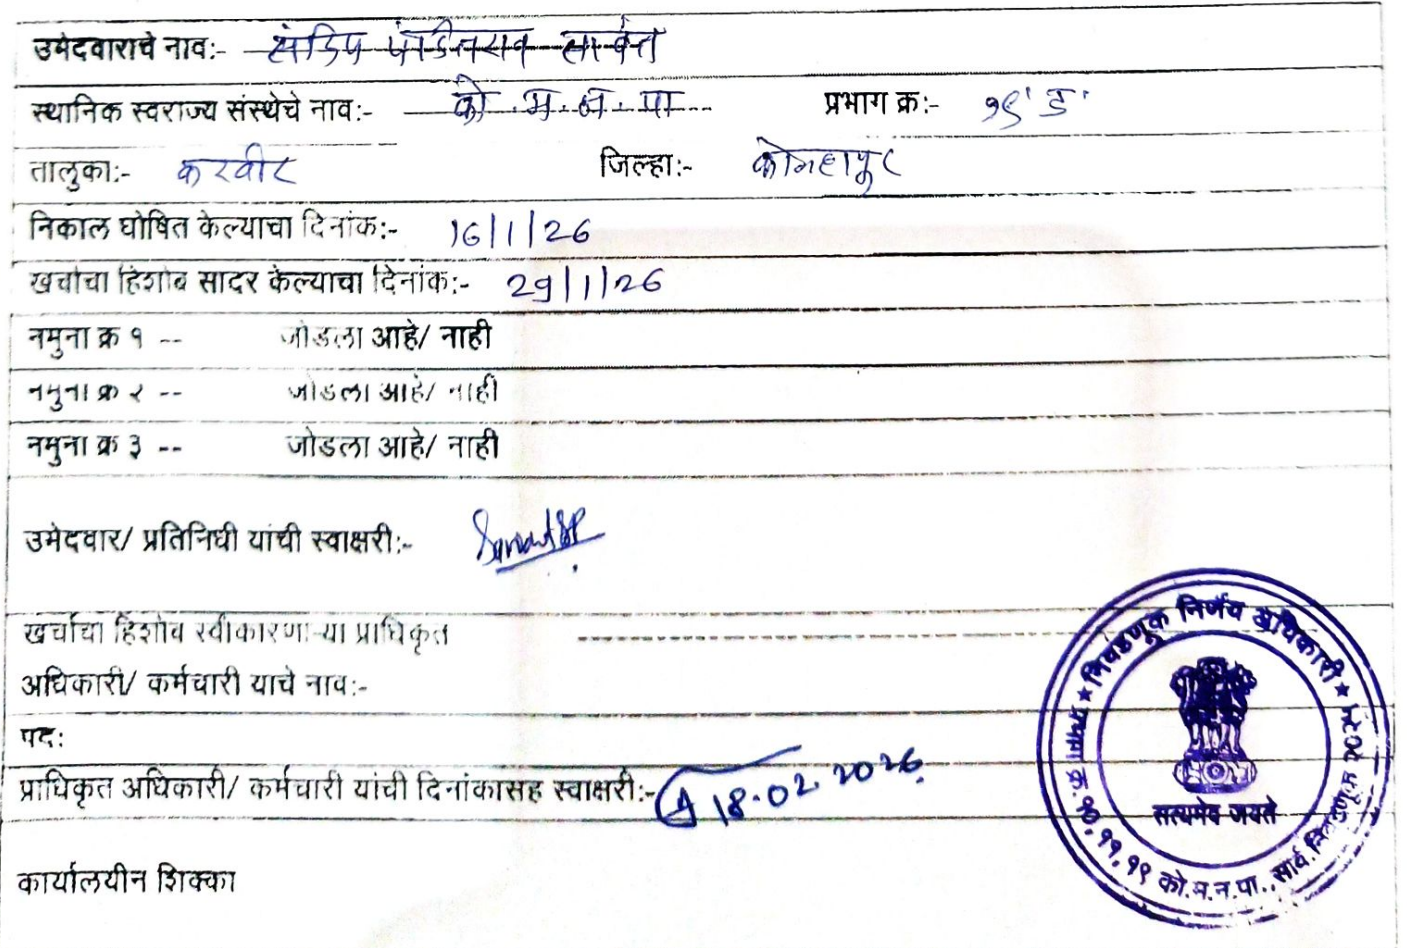 उमेदवाराचे नाव:- संदिप पंडीतराव सावंत
स्थानिक स्वराज्य संस्थेचे नाव:- को.म.न.पा प्रभाग क्र:- १९'ड'
तालुका:- करवीर जिल्हा:- कोल्हापूर
निकाल घोषित केल्याचा दिनांक:- 16/1/26
खर्चाचा हिशोब सादर केल्याचा दिनांक:- 29/1/26
नमुना क्र १ -- जोडला आहे/ नाही
नमुना क्र २ -- जोडला आहे/ नाही
नमुना क्र ३ -- जोडला आहे/ नाही
उमेदवार/ प्रतिनिधी यांची स्वाक्षरी:- Sawant SP
खर्चाचा हिशोब स्वीकारणा-या प्राधिकृत
अधिकारी/ कर्मचारी याचे नाव:-
पद:
प्राधिकृत अधिकारी/ कर्मचारी यांची दिनांकासह स्वाक्षरी:- 18.02.2026
कार्यालयीन शिक्का
★ निवडणूक निर्णय अधिकारी ★
सत्यमेव जयते
१०, ११, १९ को.म.न.पा., सार्व. निवडणूक २०२५